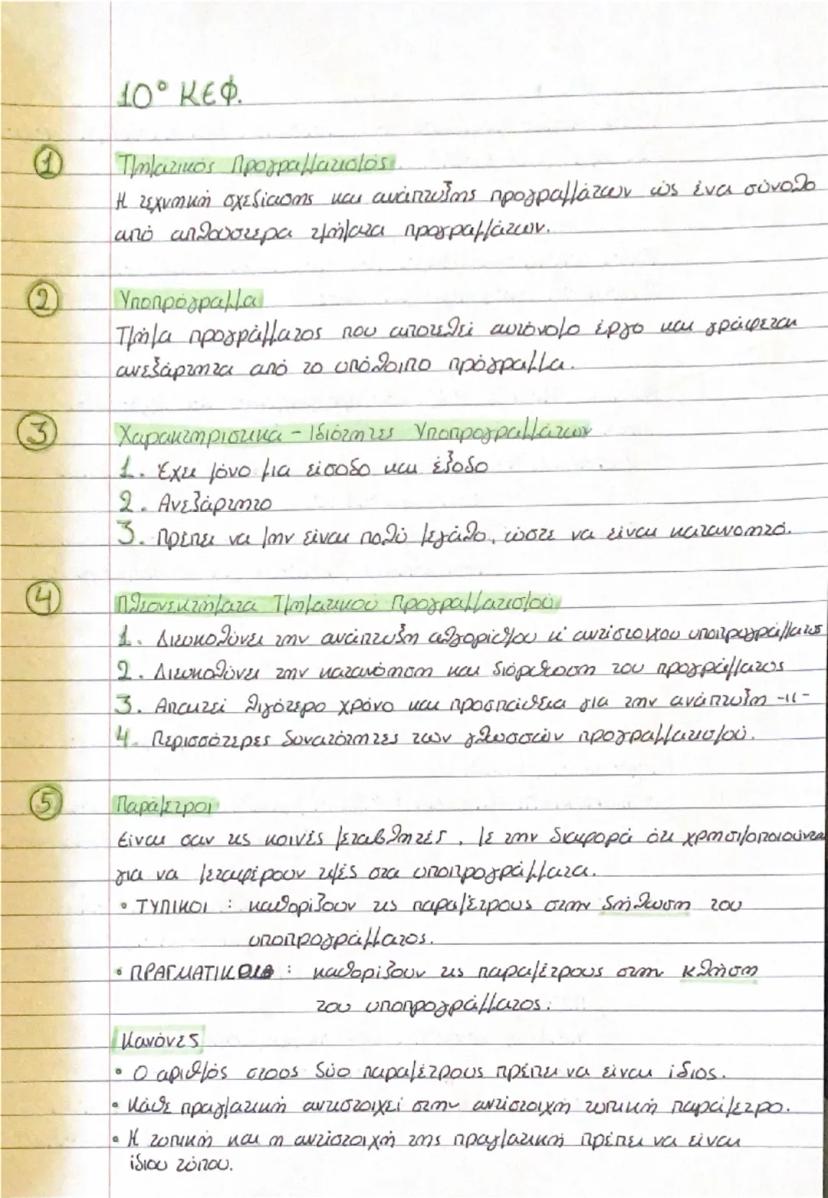 10° ΚΕΦ.
1 Τμηματικός Προγραμματισμός
Η τεχνική σχεδίασης και ανάπτυξης προγραμμάτων ως ένα σύνολο
από απλούστερα τμήματα προγραμμάτων.
2 Υποπρόγραμμα
Τμήμα προγράμματος που αποτελεί αυτόνομο έργο και γράφεται
ανεξάρτητα από το υπόλοιπο πρόγραμμα.
3 Χαρακτηριστικά - Ιδιότητες Υποπρογραμμάτων
1. Έχει μόνο μια είσοδο και έξοδο
2. Ανεξάρτητο
3. Πρέπει να μην είναι πολύ μεγάλο, ώστε να είναι κατανοητό.
4 Πλεονεκτήματα Τμηματικού Προγραμματισμού
1. Διευκολύνει την ανάπτυξη αλγορίθμου κ' αντίστοιχου υποπρογράμματος
2. Διευκολύνει την κατανόηση και διόρθωση του προγράμματος
3. Απαιτεί λιγότερο χρόνο και προσπάθεια για την ανάπτυξη -||-
4. Περισσότερες δυνατότητες των γλωσσών προγραμματισμού.
5 Παράμετροι
Είναι σαν τις κοινές μεταβλητές, με την διαφορά ότι χρησιμοποιούνται
για να μεταφέρουν τιμές στα υποπρογράμματα.
• ΤΥΠΙΚΟΙ : καθορίζουν τις παραμέτρους στην δήλωση του
υποπρογράμματος.
• ΠΡΑΓΜΑΤΙΚΟΙ : καθορίζουν τις παραμέτρους στην κλήση
του υποπρογράμματος.
Κανόνες
• Ο αριθμός στους δύο παραμέτρους πρέπει να είναι ίδιος.
• Κάθε πραγματική αντιστοιχεί στην αντίστοιχη τυπική παράμετρο.
• Η τυπική και η αντίστοιχή της πραγματική πρέπει να είναι
ίδιου τύπου.